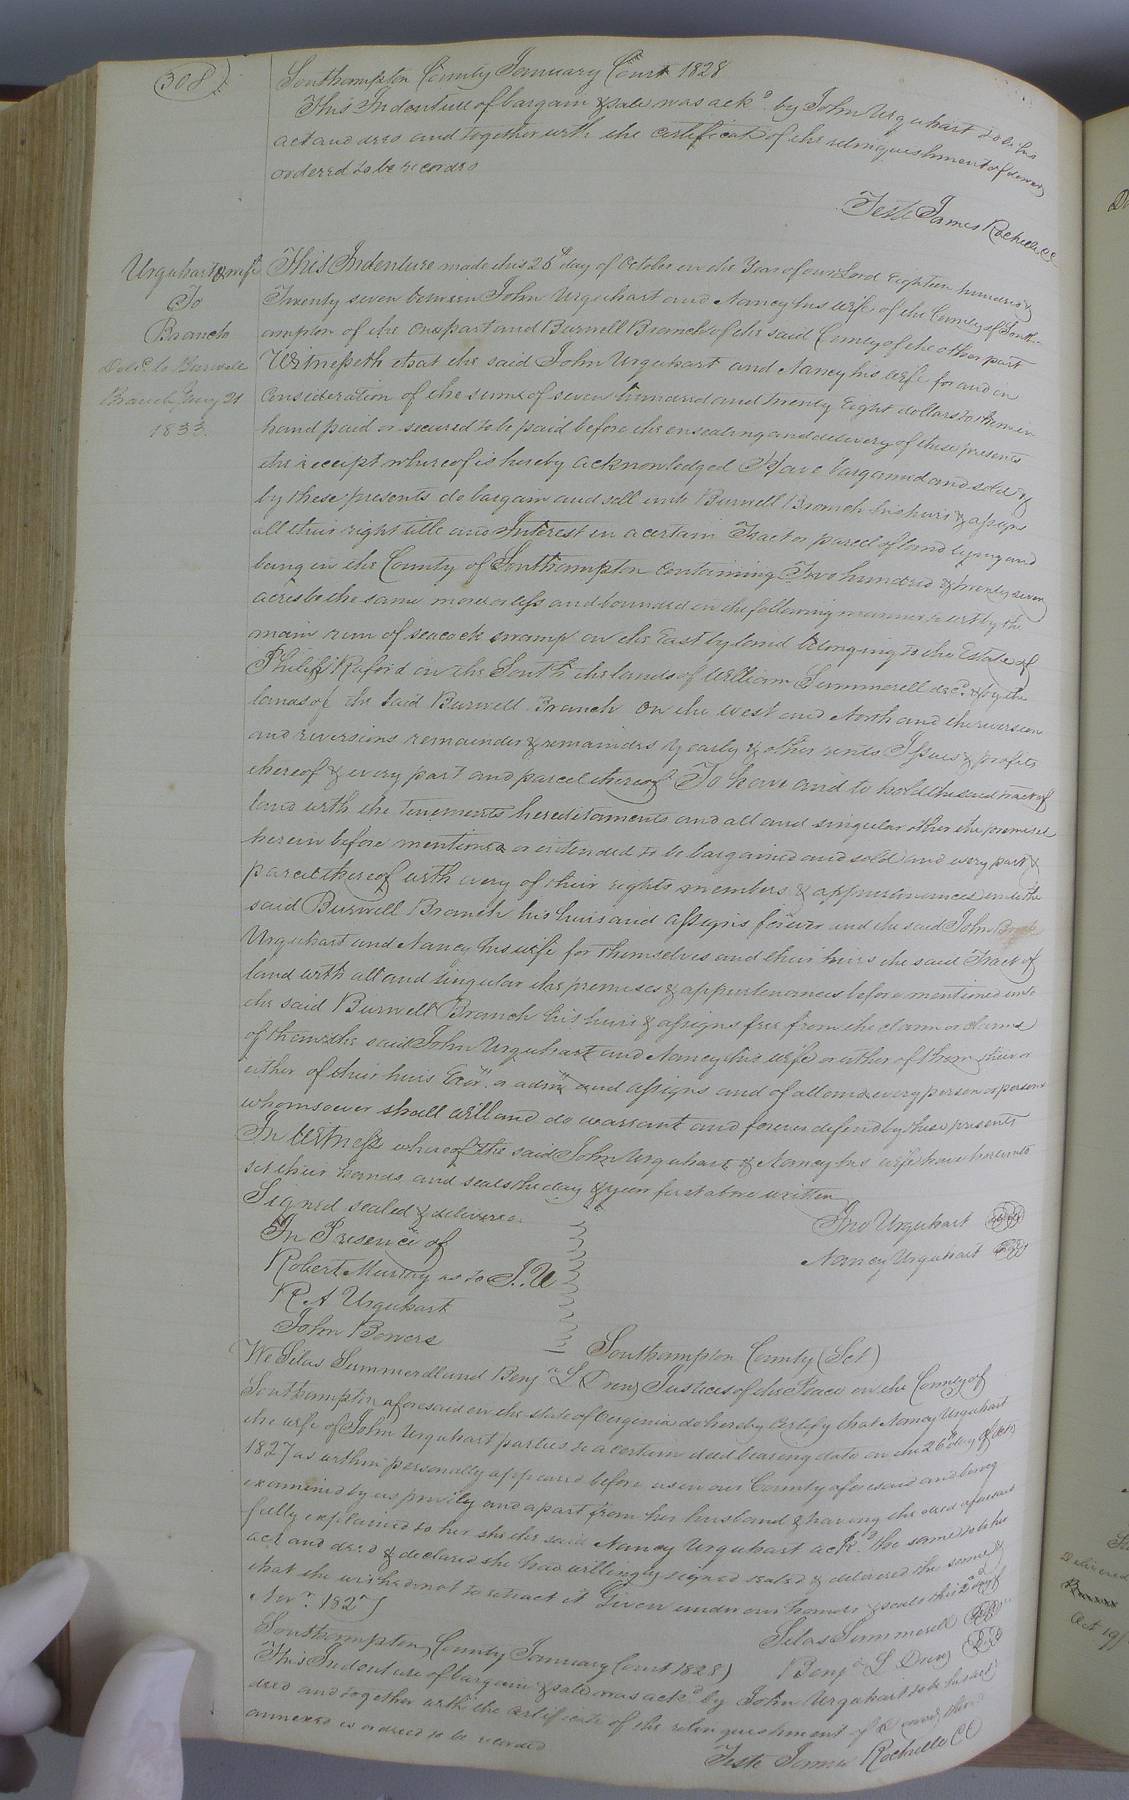 308
Southampton County January Court 1828
This Indenture of bargain & sale was ackd. by John Urquhart to be his
act and deed and together with the certificate of the relinquishment of dower
ordered to be recorded
Teste James Rochelle CC
Urquhart & wife
To
Branch
Deld. to Burwell
Branch Augy 21
1833.
This Indenture made this 26th day of October in the Year of our Lord Eighteen hundred &
Twenty seven between John Urquhart and Nancy his wife of the County of South-
ampton of the one part and Burwell Branch of the said County of the other part
Witnesseth that the said John Urquhart and Nancy his wife for and in
Consideration of the sum of seven hundred and twenty Eight dollars to them in
hand paid or secured to be paid before the ensealing and delivery of these presents
the receipt whereof is hereby acknowledged Have bargained and sold &
by these presents do bargain and sell unto Burwell Branch his heirs & assigns
all their right title and Interest in a certain Tract or parcel of land lying and
being in the County of Southampton containing Two hundred & twenty seven
acres be the same more or less and bounded in the following manner to wit by the
main run of seacock swamp on the East by land belonging to the Estate of
Philip Raford in the South the lands of William Summerell decd. & by the
lands of the said Burwell Branch on the West and North and the reversion
and reversions remainder & remainders yearly & other rents Issues & profits
thereof & every part and parcel thereof To have and to hold the said tract of
land with the tenements hereditaments and all and singular other the premises
herein before mentioned or intended to be bargained and sold and every part &
parcel thereof with every of their rights members & appurtenances unto the
said Burwell Branch his heirs and assigns forever and the said John
Urquhart and Nancy his wife for themselves and their heirs the said Tract of
land with all and singular the premises & appurtenances before mentioned unto
the said Burwell Branch his heirs & assigns free from the claim or claims
of them the said John Urquhart and Nancy his wife or either of them their or
either of their heirs Exors. or admrs and assigns and of all and every person or persons
whomsoever shall will and do warrant and forever defend by these presents
In Witness whereof the said John Urquhart & Nancy his wife have hereunto
set their hands and seals the day & year first above written
Signed sealed & delivered
In Presence of
Robert Murray as to J. U
R. A Urquhart
John Bowers
Jno Urquhart Seal
Nancy Urquhart Seal
Southampton County (Sct)
We Silas Summerell and Benjn L Drew Justices of the Peace in the County of
Southampton aforesaid in the state of Virginia do hereby Certify that Nancy Urquhart
the wife of John Urquhart parties to a certain deed bearing date on the 26th day of Octr
1827 as within personally appeared before us in our County aforesaid and being
examined by us privily and apart from her husband & having the deed aforesaid
fully explained to her she the said Nancy Urquhart ackd. the same to be her
act and deed & declared she had willingly signed sealed & delivered the same &
that she wished not to retract it Given under our hands & seals this 2nd day of
Novr. 1827
Silas Summerell Seal
Benjn L. Drew Seal
Southampton County January Court 1828)
This Indenture of bargain & sale was ackd by John Urquhart to be his act
deed and together with the certificate of the relinquishment of Dower thereto
annexed is ordered to be recorded
Teste James Rochelle CC
Delivered
Oct 19